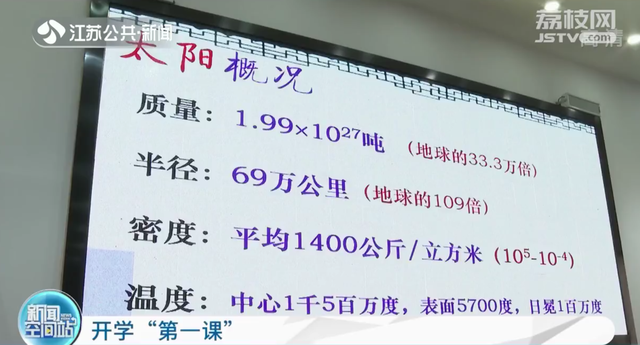 江苏公共·新闻
荔枝网
JSTV.com
高清
太阳概况
质量：1.99×10²⁷吨 (地球的33.3万倍)
半径：69万公里 (地球的109倍)
密度：平均1400公斤/立方米 (10⁵-10⁻⁴)
温度：中心1千5百万度，表面5700度，日冕1百万度
新闻
空间站
开学“第一课”